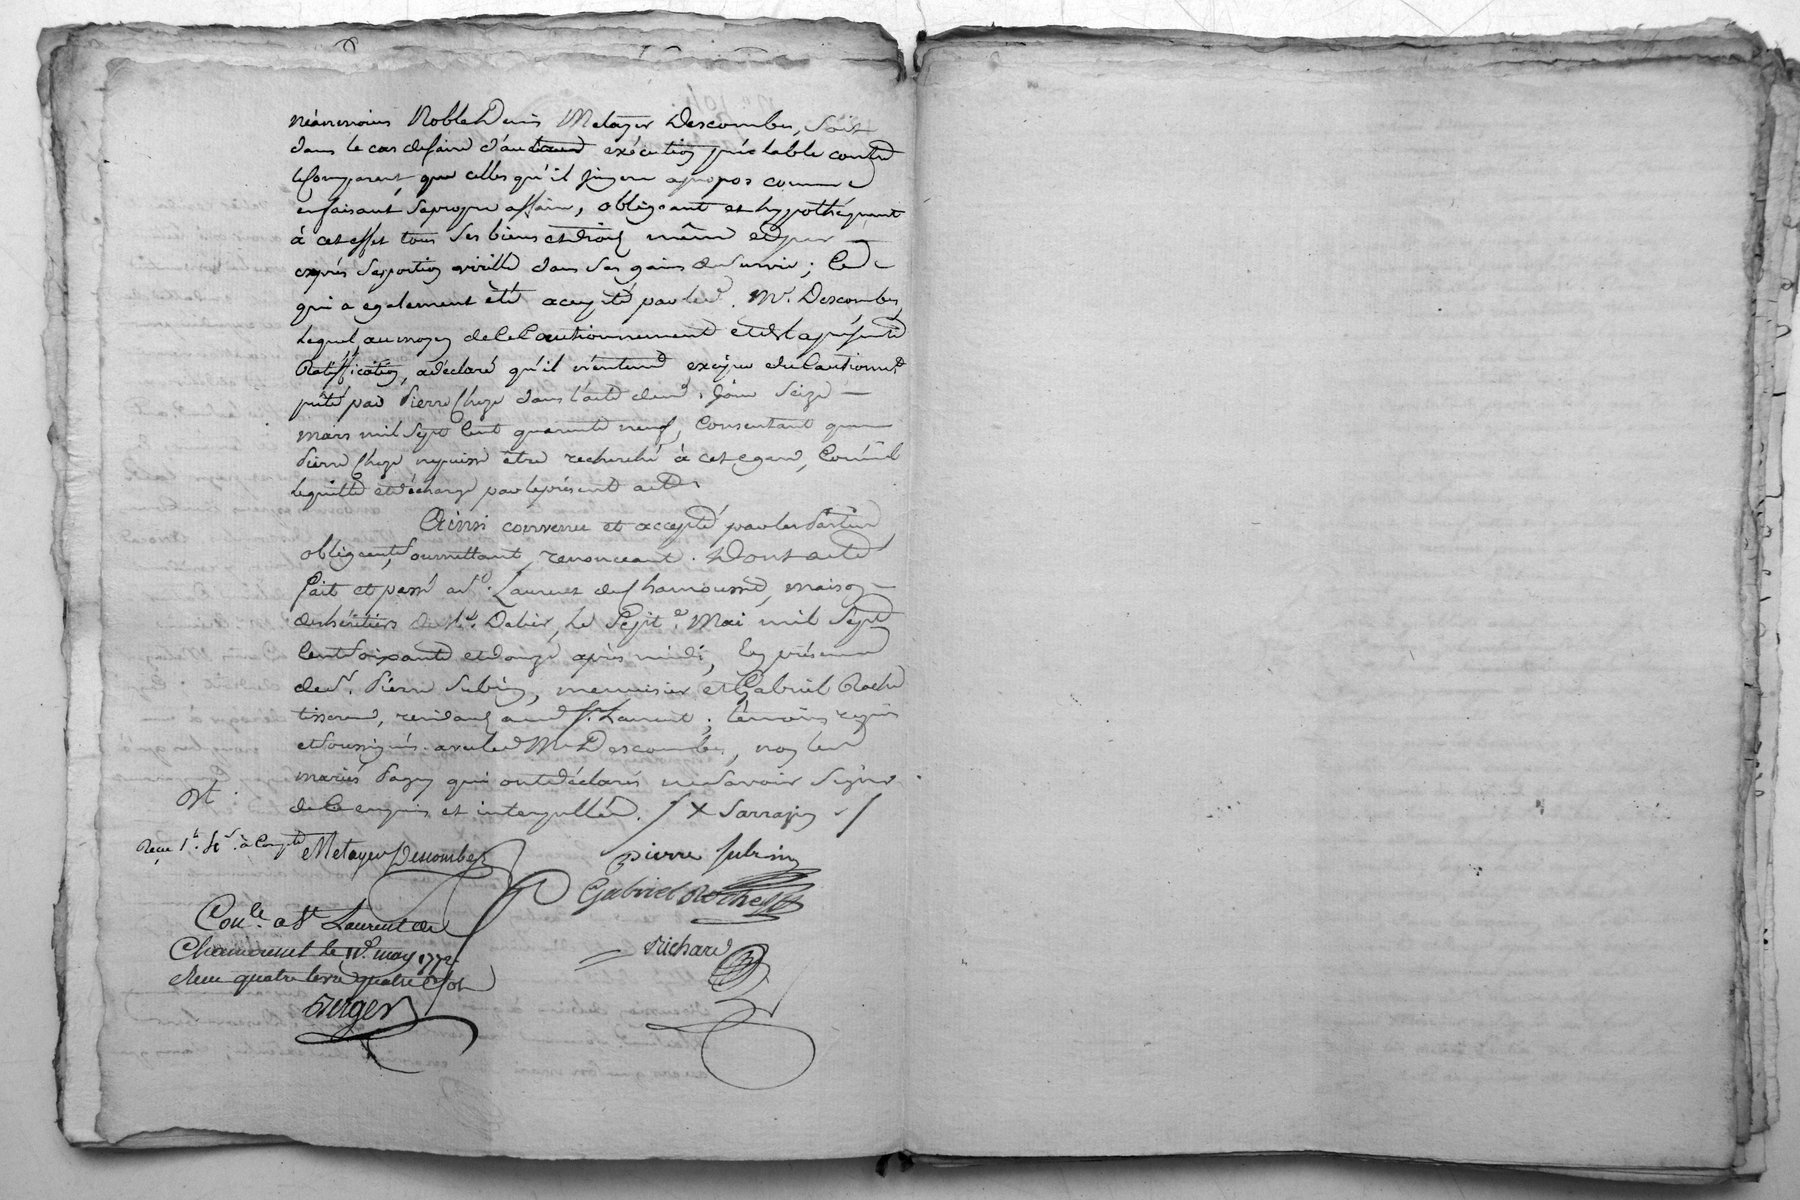 néanmoins Noble Denis Metayer Descombes, soit
dans le cas de faire d'aucune exécution préalable contre
le Comparent, que celles qu'il jugera apropos comme
en faisant sa propre affaire, obligeant et hypothéquant
à cet effet tous ses biens et droits même et par
exprès sa portion virille dans ses gains de survie; Ce
qui a egalement été accepté par led. Mr. Descombes,
Lequel, au moyen de ce Cautionnement et de la présente
Ratiffication, a déclaré qu'il n'entend exciper du Cautionnemt
prété par Pierre Cheze dans l'acte dud. jour seize
mars mil sept Cent quarante neuf, Consentant que
Pierre Cheze ne puisse être recherché à cet egard, Comme il
le quitte et décharge par le présent acte.
Ainsi convenu et accepté par les Parties
obligeant, soumettant, renonceant. Dont acte
fait et passé a St. Laurent de Chamousset, maison
des héritiers de Me. Dalier, le sept Mai mil sept
Cent soixante et douze après midi, En présence
de Sr. Pierre Subrin, menuisier et Gabriel Roche
tisserand, residants aud St. Laurent, témoins requis
et soussignés avec led Mr Descombes, non les
mariés Pagny qui ont déclarés ne savoir signer
de ce enquis et interpellés. / X Sarrazin /
Reçu 1 à Compte
Metayer Descombes
Pierre Subrin
Gabriel Roche
Conlé. a St Laurent de
Chamousset le may 1772
Reçu quatre livre quatre sol
Berger
Richard